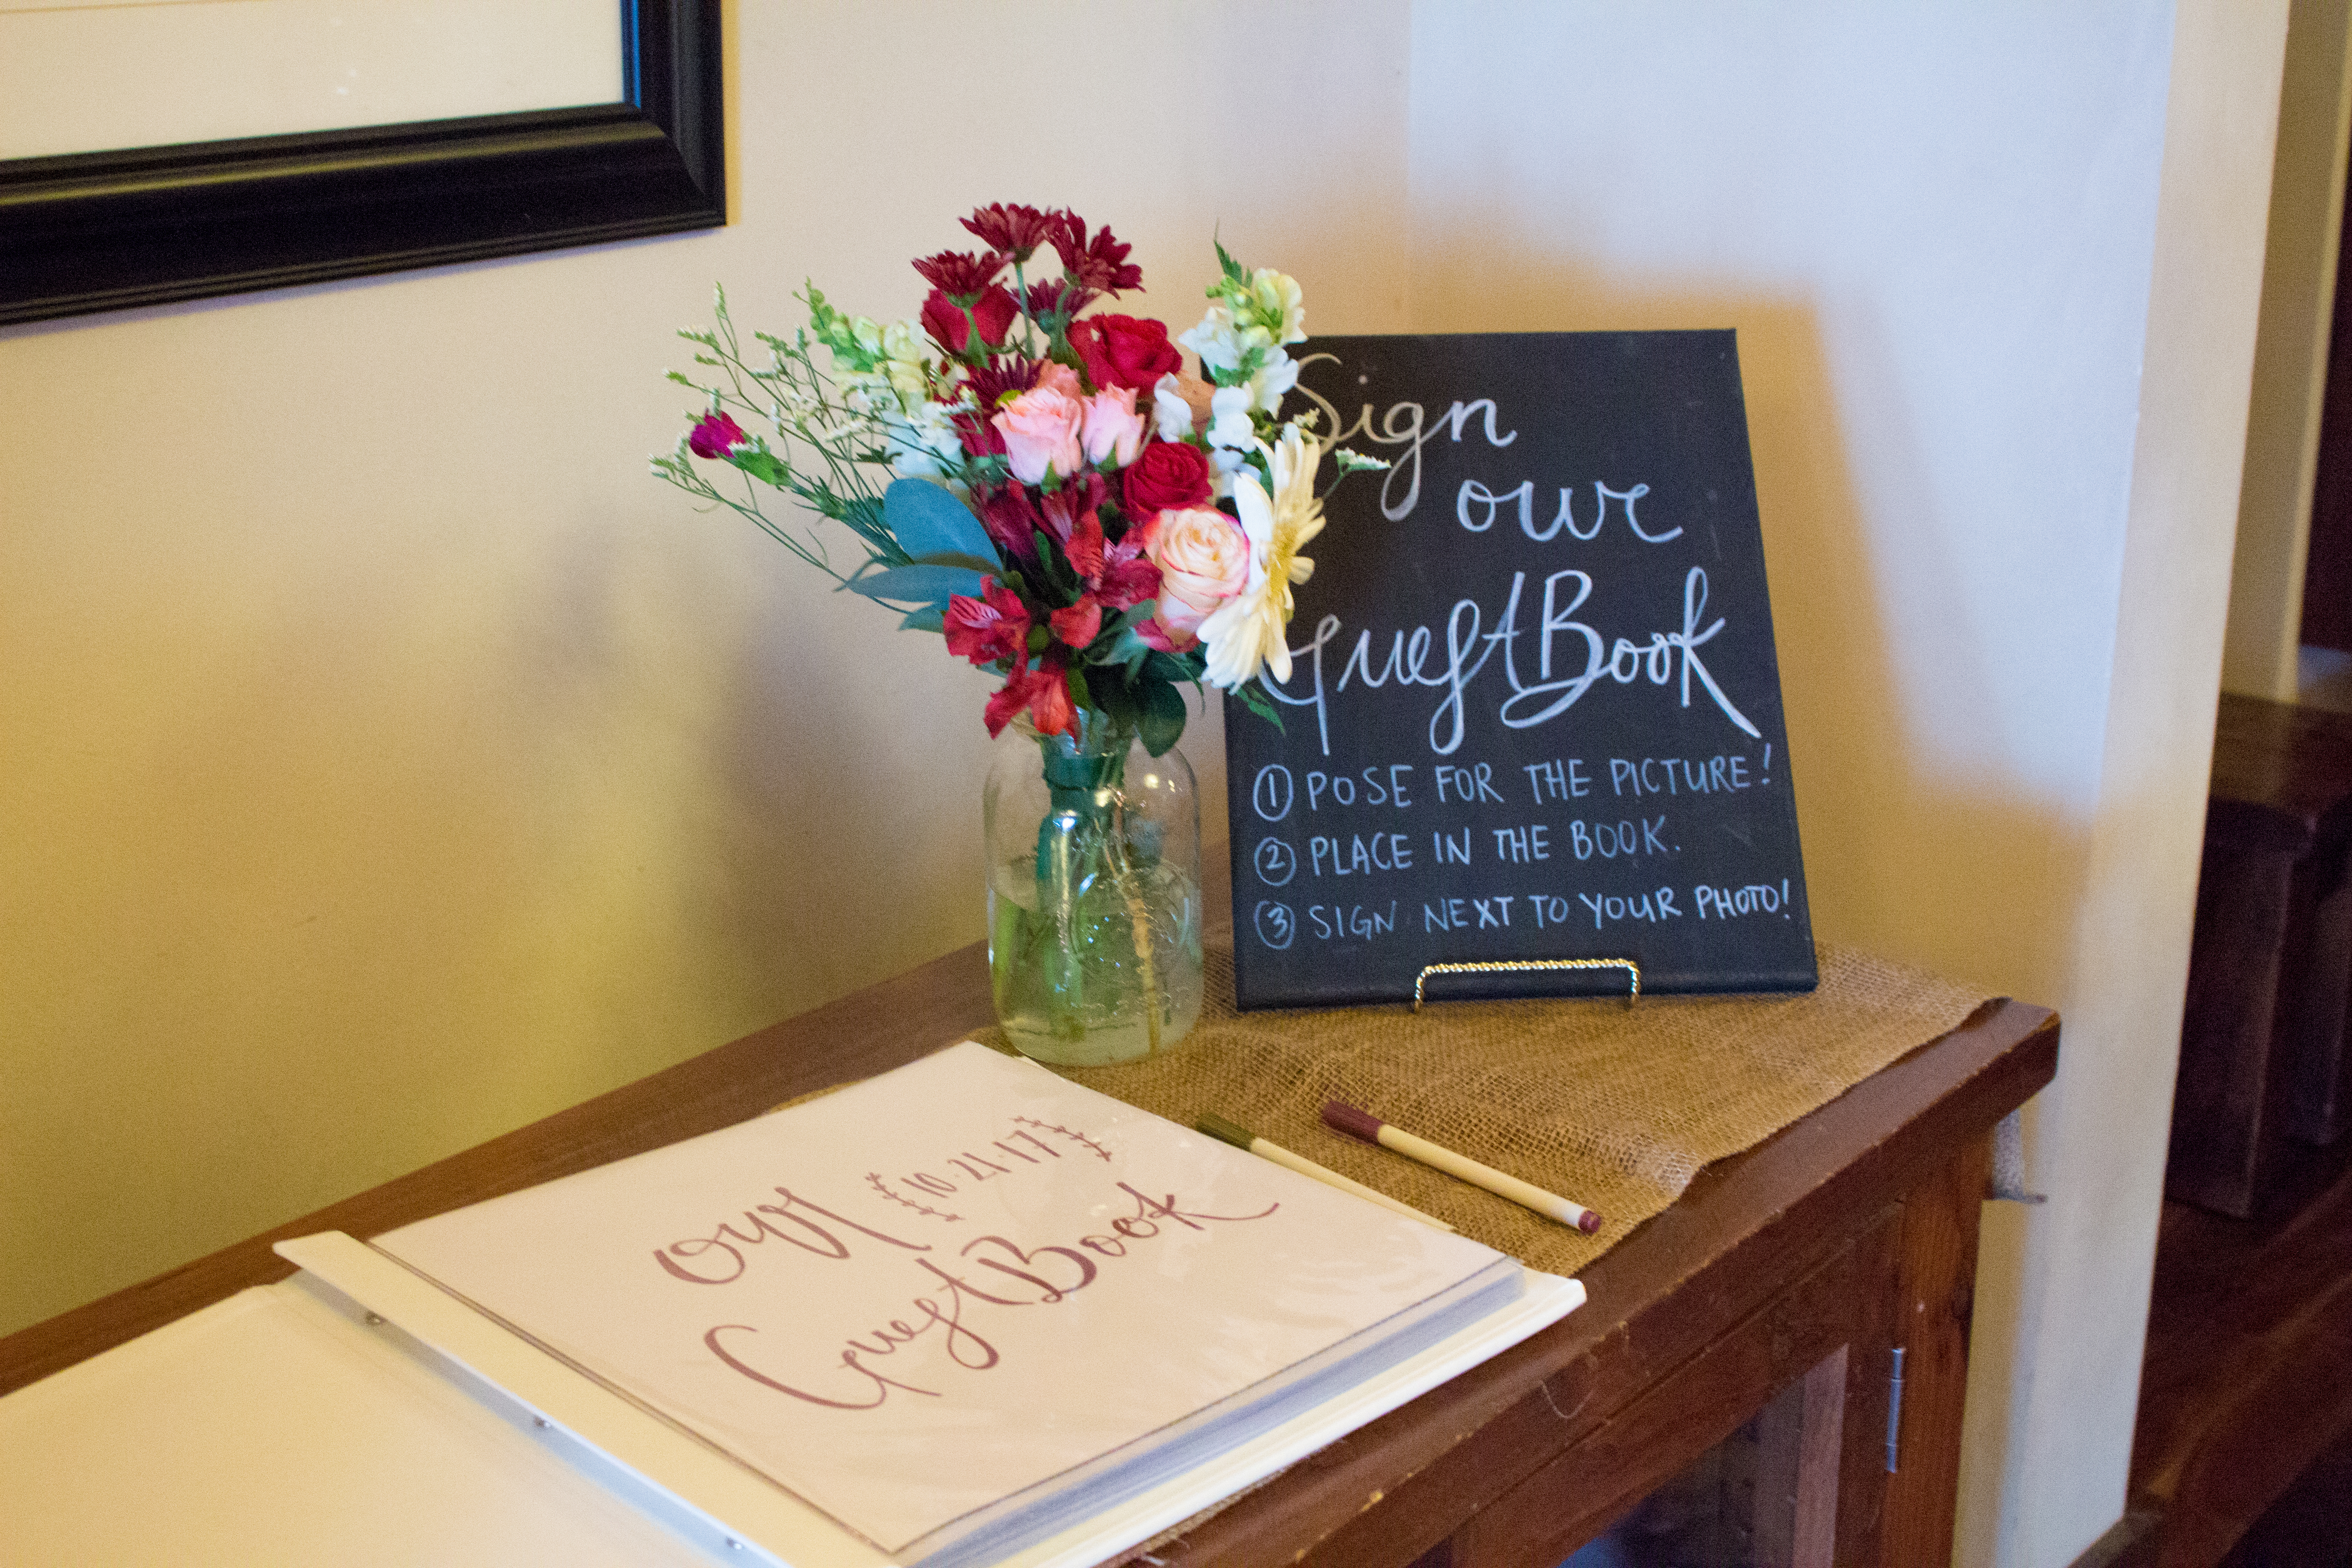 Sign
our
GuestBook
① POSE FOR THE PICTURE!
② PLACE IN THE BOOK.
③ SIGN NEXT TO YOUR PHOTO!
our
10·21·17
GuestBook